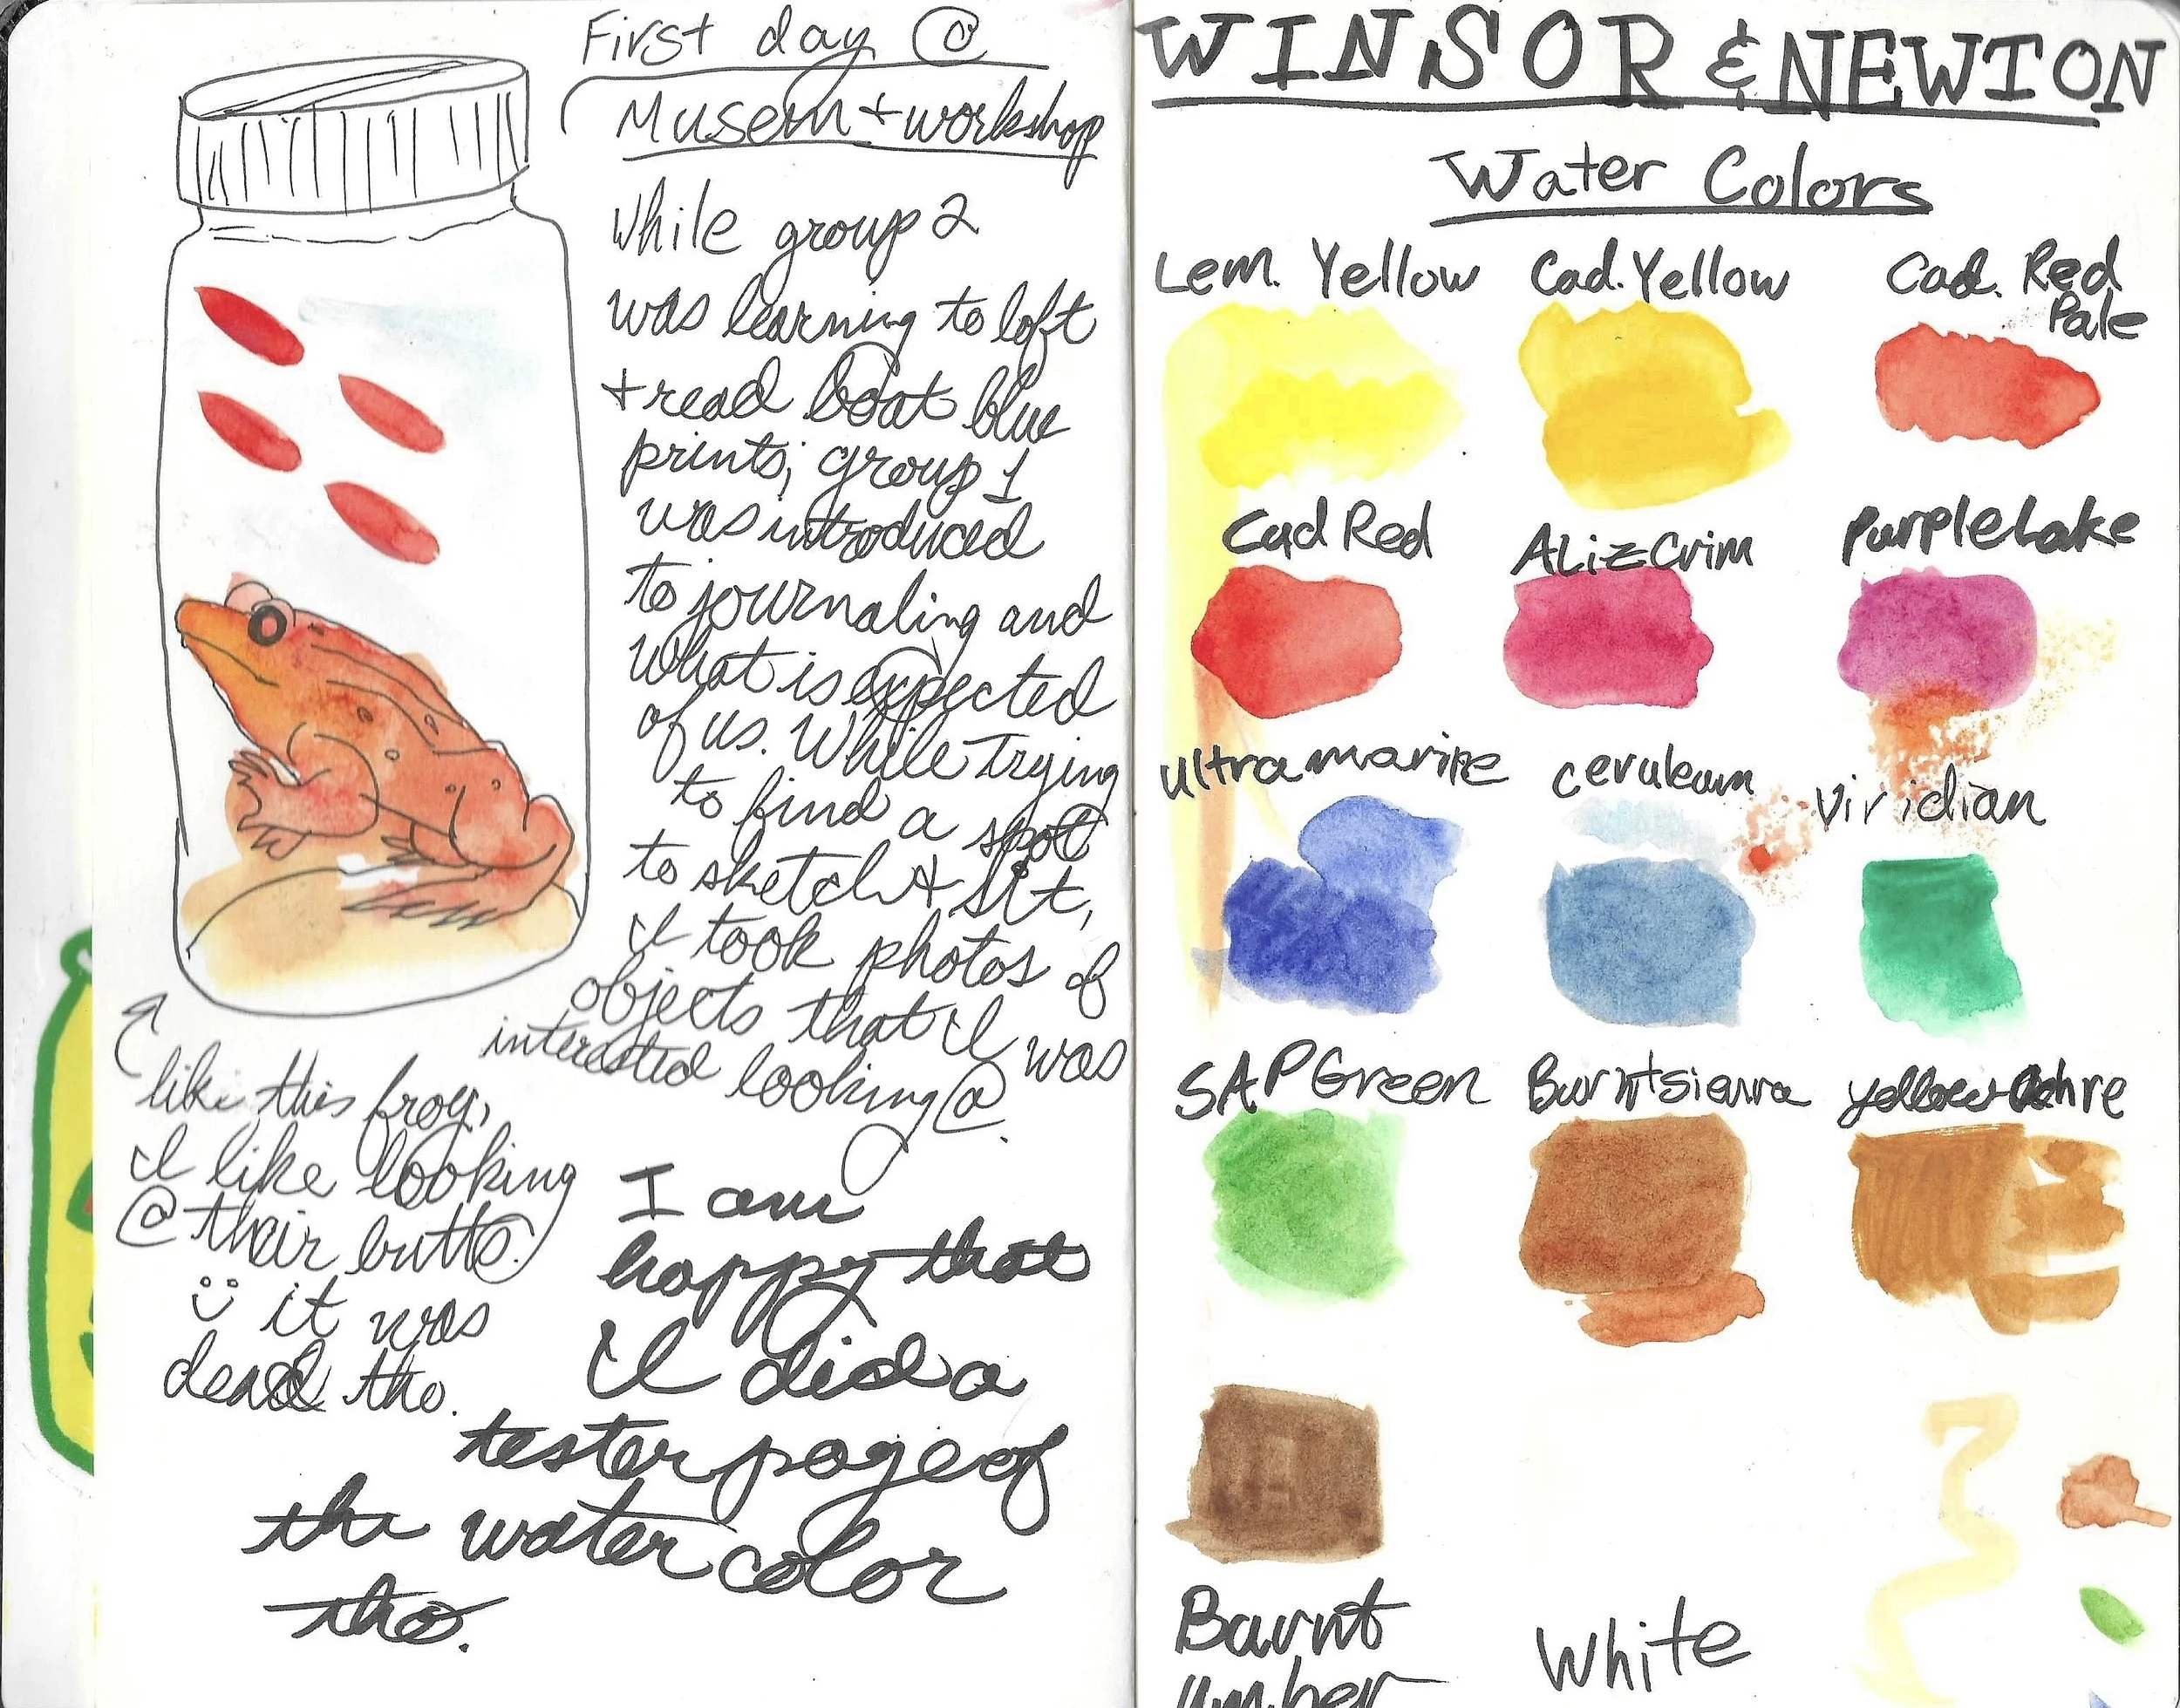 First day @
Musem + workshop
While group 2
was learning to loft
+ read boat blue
prints; group 1
was introduced
to journaling and
what is expected
of us. While trying
to find a spot
to sketch + sit,
I took photos of
objects that I was
interested looking @.
like this frog,
I like looking
@ their butts.
it was
dead tho.
I am
happy that
I did a
tester page of
the water color
tho.
WINSOR & NEWTON
Water Colors
Lem. Yellow Cad. Yellow Cad. Red
Pale
Cad Red Aliz Crim Purple Lake
Ultramarine ceruleum Viridian
SAP Green Burnt sienna yellow Ochre
Burnt White
umber